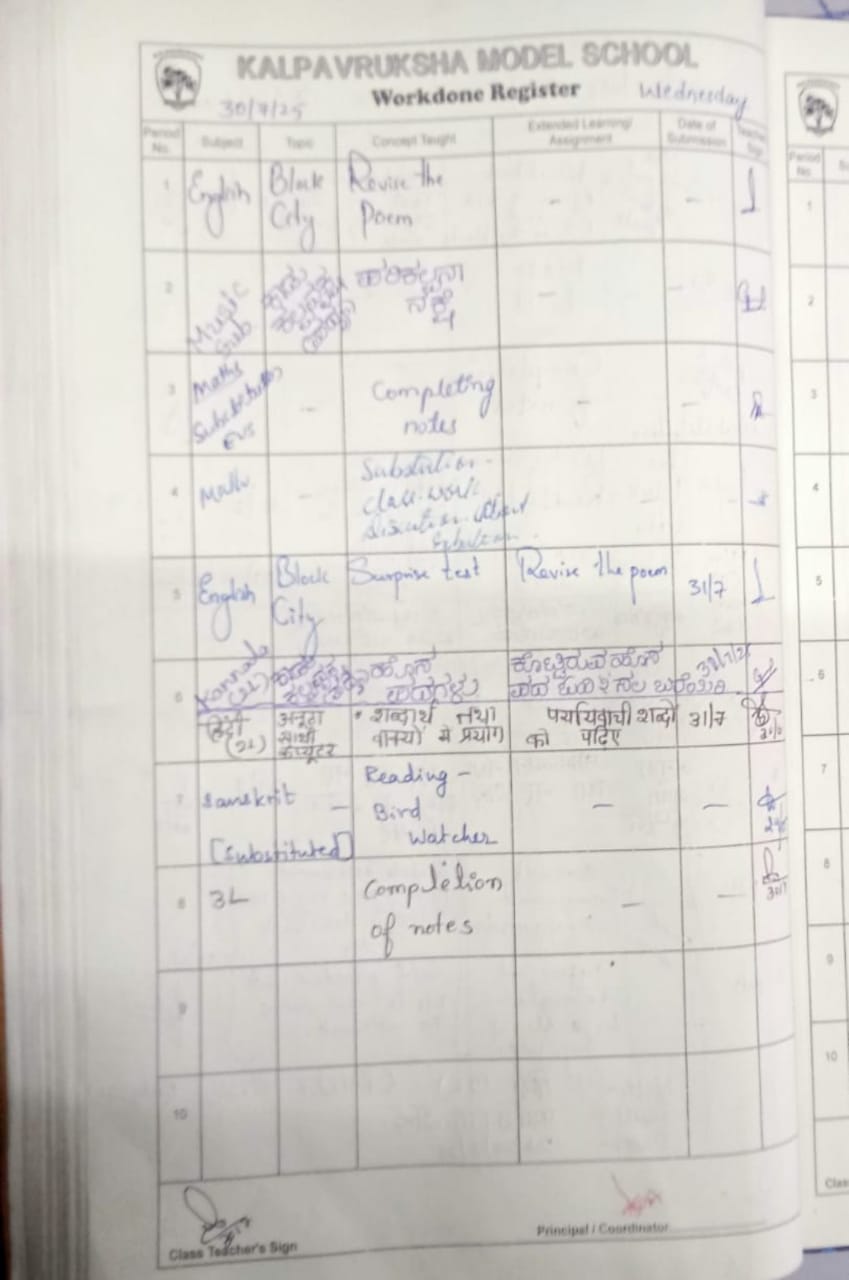 KALPAVRUKSHA MODEL SCHOOL
Workdone Register
30/7/25 Wednesday
Period No. Subject Topic Concept Taught Extended Learning/ Assignment Date of Submission Teacher Sign
1 English Block City Revise the Poem - -
2 Music Sub ಪರಿಕಲ್ಪನಾ ನಕ್ಷೆ - -
3 Maths Substitution EVS - Completing notes - -
4 Maths - Substution - class work
5 English Block City Surprise test Revise the poem 31/7
6 Kannada (2L) ಹೊಸ ಪದಗಳು ಕೊಟ್ಟಿರುವ ಹೊಸ
हिंदी (2L) अनूठा साथी कंप्यूटर • शब्दार्थ तथा वाक्यों में प्रयोग पर्यायवाची शब्दों को पढ़िए 31/7
7 Sanskrit [Substituted] - Reading - Bird Watcher - -
8 3L Completion of notes - -
9
10
Class Teacher's Sign
Principal / Coordinator
Period No.
1
2
3
4
5
6
7
8
9
10